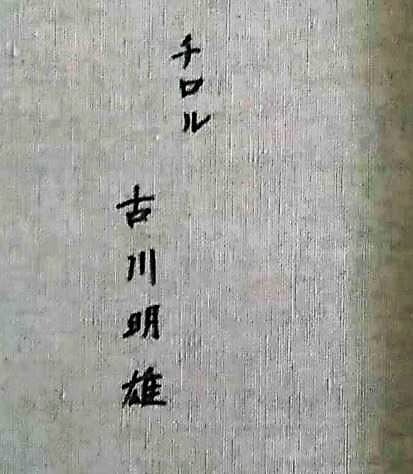 チロル
古川明雄